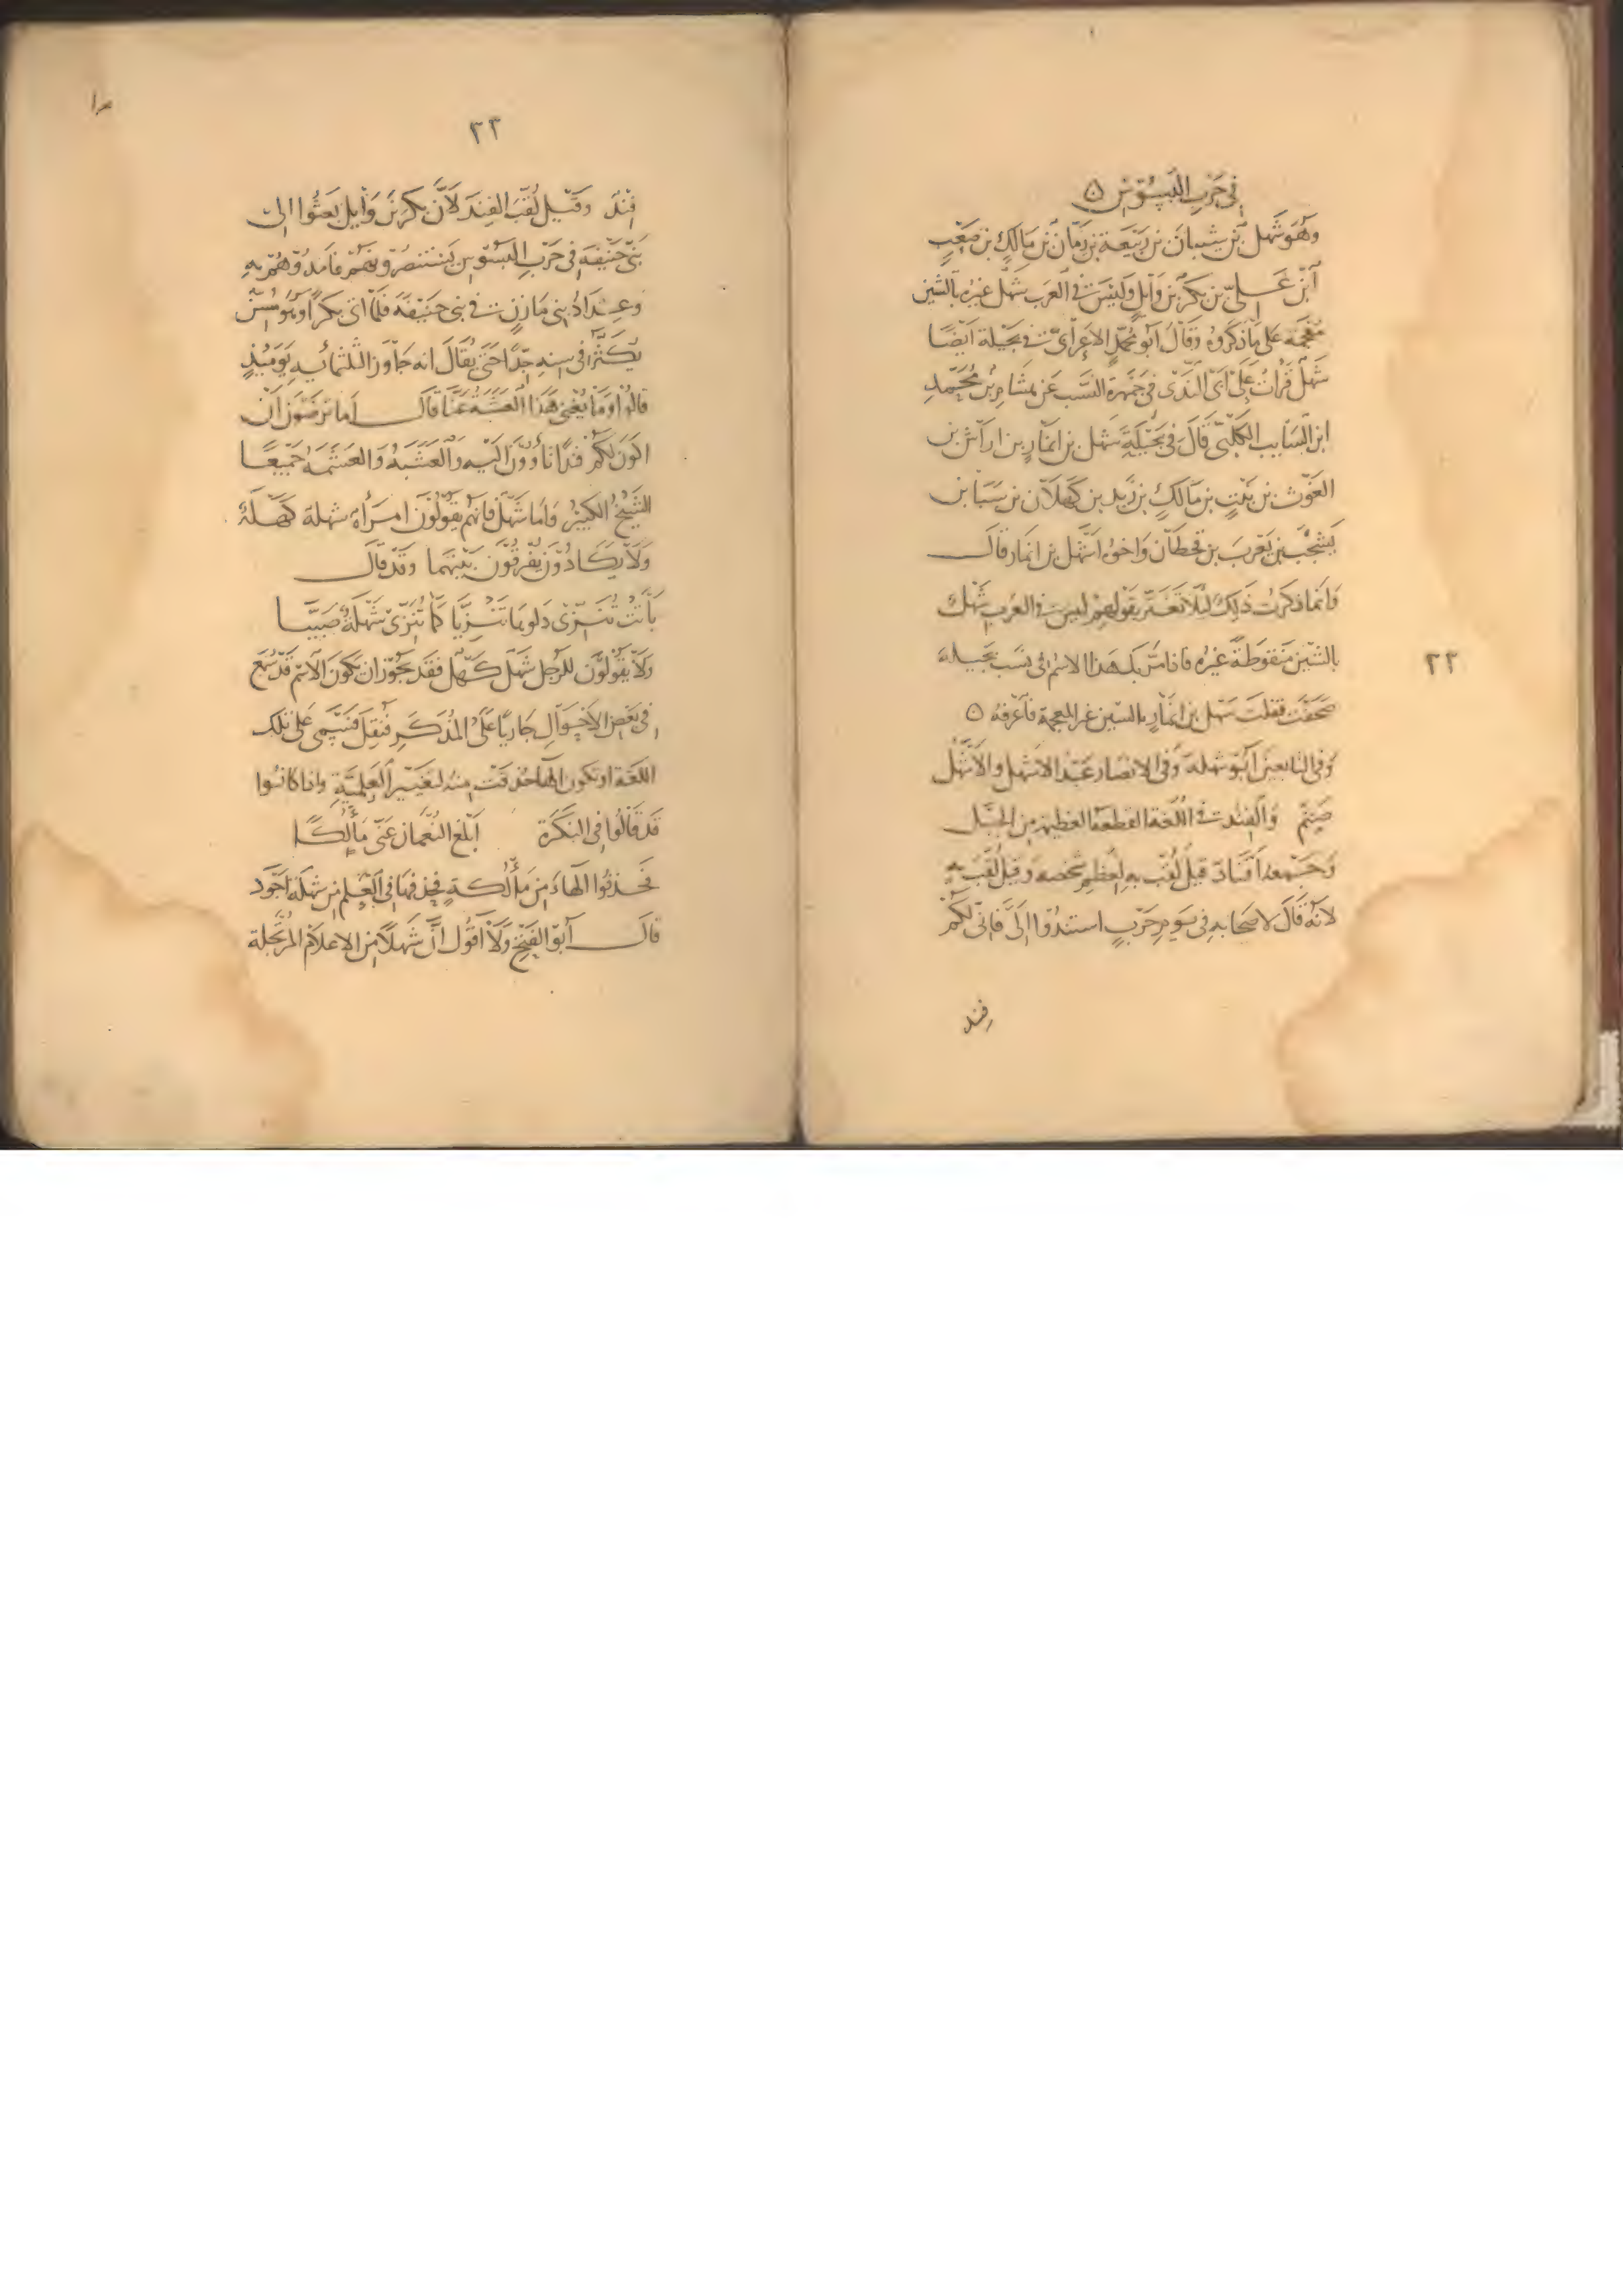 في حرب البسوس ن
وهو شهل بن شيبان بن ربيعة بن زمان بن مالك بن صعب
ابن علي بن بكر بن وايل وليس في العرب شهل غيره بالشين
معجمة على ما ذكروه وقال ابو محمد الاعرابي في بجيلة ايضا
شهل قرات على ابي الندى في جمهرة النسب عن هشام بن محمد
ابن السايب الكلبي قال في بجيلة شهل بن انمار بن اراش بن
الغوث بن نبت بن مالك بن زيد بن كهلان بن سبا بن
يشجب بن يعرب بن قحطان واخوه اشهل بن انمار قال
وانما ذكرت ذلك ليلا تغتر بقولهم ليس في العرب شهل
بالشين منقوطة غيره فاذا مر بك هذا الاسم في نسب بجيلة
صحفت فقلت سهل بن انمار بالسين غير المعجمة فاعرفه ن
وفي التابعين ابو شهلة وفي الانصار عبد الاشهل والاشهل
صنم والفند في اللغة القطعة العظيمة من الجبل
وجمعه افناد قيل لقب به لعظم شخصه وقيل لقب به
لانه قال لاصحابه في يوم حرب استندوا الي فاني لكم
فند
٢٢
٢٣
فند وقيل لقب الفند لان بكر بن وايل بعثوا الى
بني حنيفة في حرب البسوس يستنصرونهم فامدوهم به
وعداد بني مازن في بني حنيفة فلما اتى بكرا وهو مسن
قالوا وما يغني هذا العشبة عنا قال اما ترضون ان
اكون لكم فندا تأوون اليه والعشبة والعشمة جميعا
الشيخ الكبير واما شهل فانهم يقولون امرأة شهلة كهلة
ولا يكادون يفرقون بينهما وقد قال
باتت تنزي دلوها تنزيا كما تنزي شهلة صبيا
ولا يقولون للرجل شهل كهل فقد يجوز ان يكون الاسم قد سمع
في بعض الاحوال جاريا على المذكر فنقل فسمي على تلك
اللغة او تكون الهاء حذفت منه لتغيير العلمية واذا كانوا
قد قالوا في النكرة ابلغ النعمان عني مألكا
فحذفوا الهاء من مألكة فحذفها في العلم من شهلة اجود
قال ابو الفتح ولا اقول ان شهلا من الاعلام المرتجلة